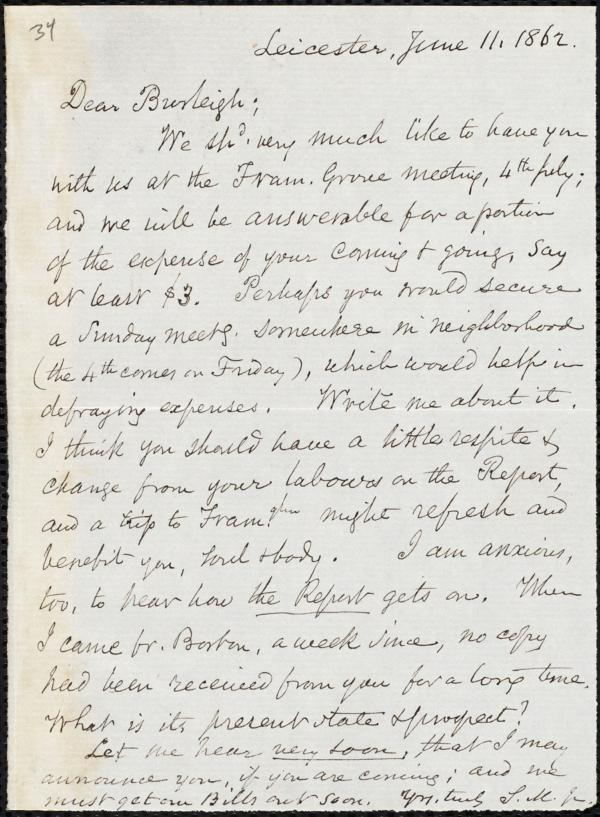 34
Leicester, June 11. 1862.
Dear Burleigh;
We shd. very much like to have you
with us at the Fram. Grove meeting, 4th July;
and we will be answerable for a portion
of the expense of your coming & going, say
at least $3. Perhaps you would secure
a Sunday meetg. somewhere in neighborhood
(the 4th comes on Friday), which would help in
defraying expenses. Write me about it.
I think you should have a little respite &
change from your labours on the Report,
and a trip to Framghm might refresh and
benefit you, soul & body. I am anxious,
too, to hear how the Report gets on. When
I came fr. Boston, a week since, no copy
had been received from you for a long time.
What is its present state & prospect?
Let me hear very soon, that I may
announce you, if you are coming; and we
must get our Bills out soon. Yrs. truly S. M. Jr.